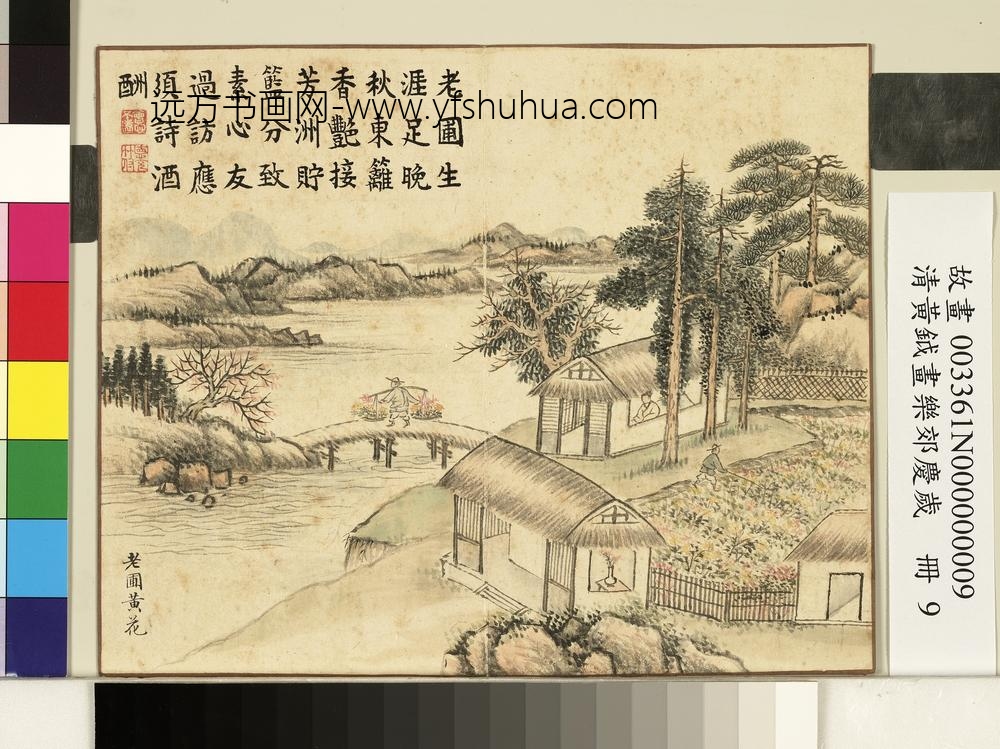 老圃生
涯足晚
秋東籬
香艷接
芳洲貯
籃分致
素心友
過訪應
須詩酒
酬
远方书画网-www.yfshuhua.com
老圃黃花
故畫 003361N000000009
清黃鉞畫樂郊慶歲 冊 9